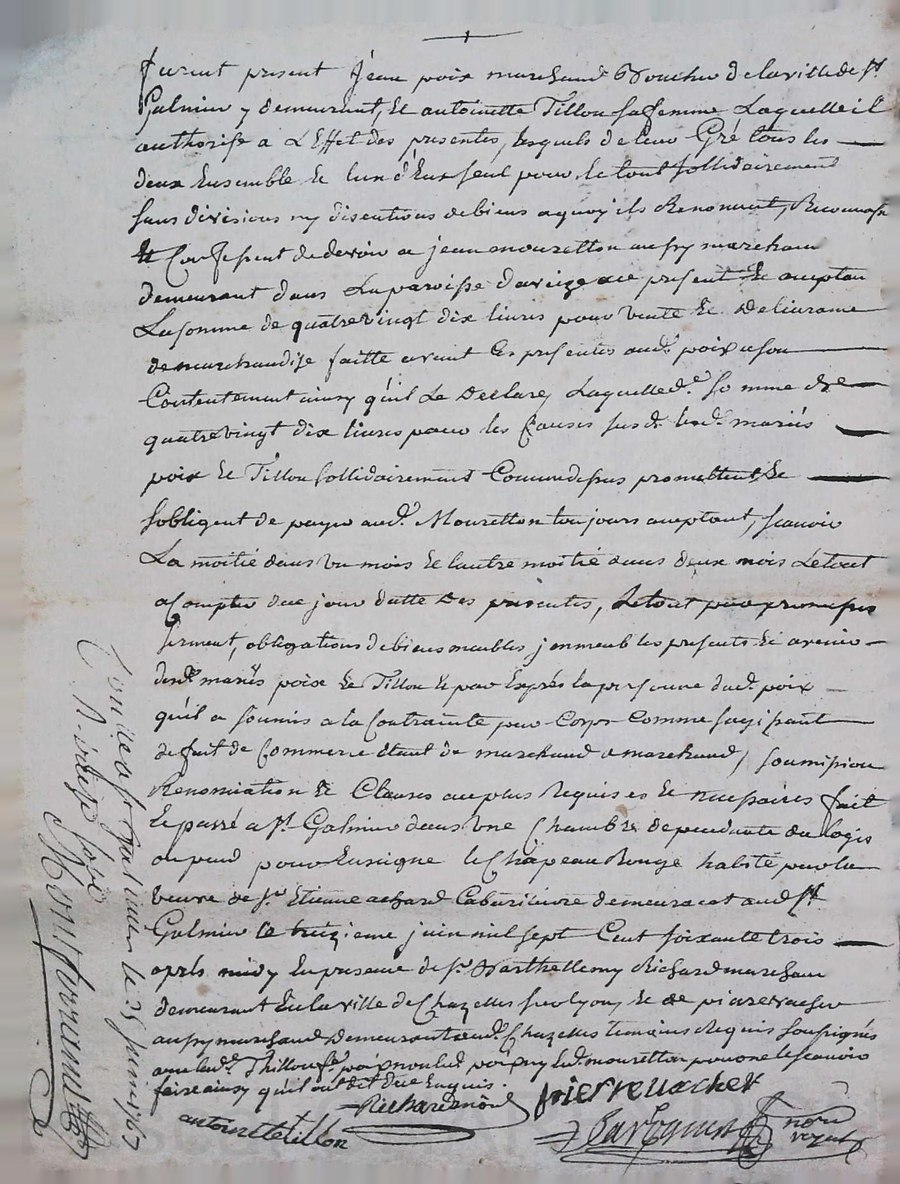 furent present Jean poix marchand Boucher de la ville de st
Galmier y demeurant, et antoinette Tillon sa femme Laquelle il
authorise a L'Effet des presentes, lesquels de leur Gré tous les
deux Ensemble et lun d'Eux seul pour le tout sollidairement
sans divisions ny discutions de biens a quoy ils Renoncent, Reconnoisse
et Confessent de devoir a jean mouretton aussy marchand
demeurant dans La paroisse d'aveize present et acceptan
La somme de quatre vingt dix livres pour vente et Delivrance
de marchandise faitte avant les presentes aud. poix a son
Contentement ainsy qu'il Le Declare, Laquelle de. somme de
quatre vingt dix livres pour les Causes susd. lesd. mariés
poix et Tillon sollidairement Comme dessus promettent et
sobligent de payer aud. Mouretton toujours acceptant, scavoir
La moitié dans un mois et lautre moitié dans deux mois Le tout
a Compter de ce jour datte des presentes, Le tout par promesses
serment, obligations de biens meubles jmmeubles presents et avenir
desd. mariés poix et Tillon et par Exprés la personne dud. poix
qu'il a soumis a la Contrainte par Corps Comme sagissant
de fait de Commerce étant de marchand a marchand, soumission
Renonciation et Clauses au plus Requises et necessaires fait
et passé a st. Galmier dans une Chambre dependante du logis
ou pend pour Enseigne le Chapeau Rouge habité par la
veuve de sr. Etienne achard Cabaretiere demeurant aud. st
Galmier le treizieme juin mil sept Cent soixante trois
aprés midy En presence de sr. Barthellemy Richard marchand
demeurant En la ville de Chazelles sur lyon, et de pierre vacher
aussy marchand Demeurant aud. Chazelles temoins Requis soussignés
avec lad. Thillon, sr. poix non led. mouretton pour ne le scavoir
faire ainsy qu'il ont dit de ce Enquis.
antoinette tillon
Richard
pierre vacher
nore
royal
Controllé a st Galmier le 25 juin 1763
R. treize sols